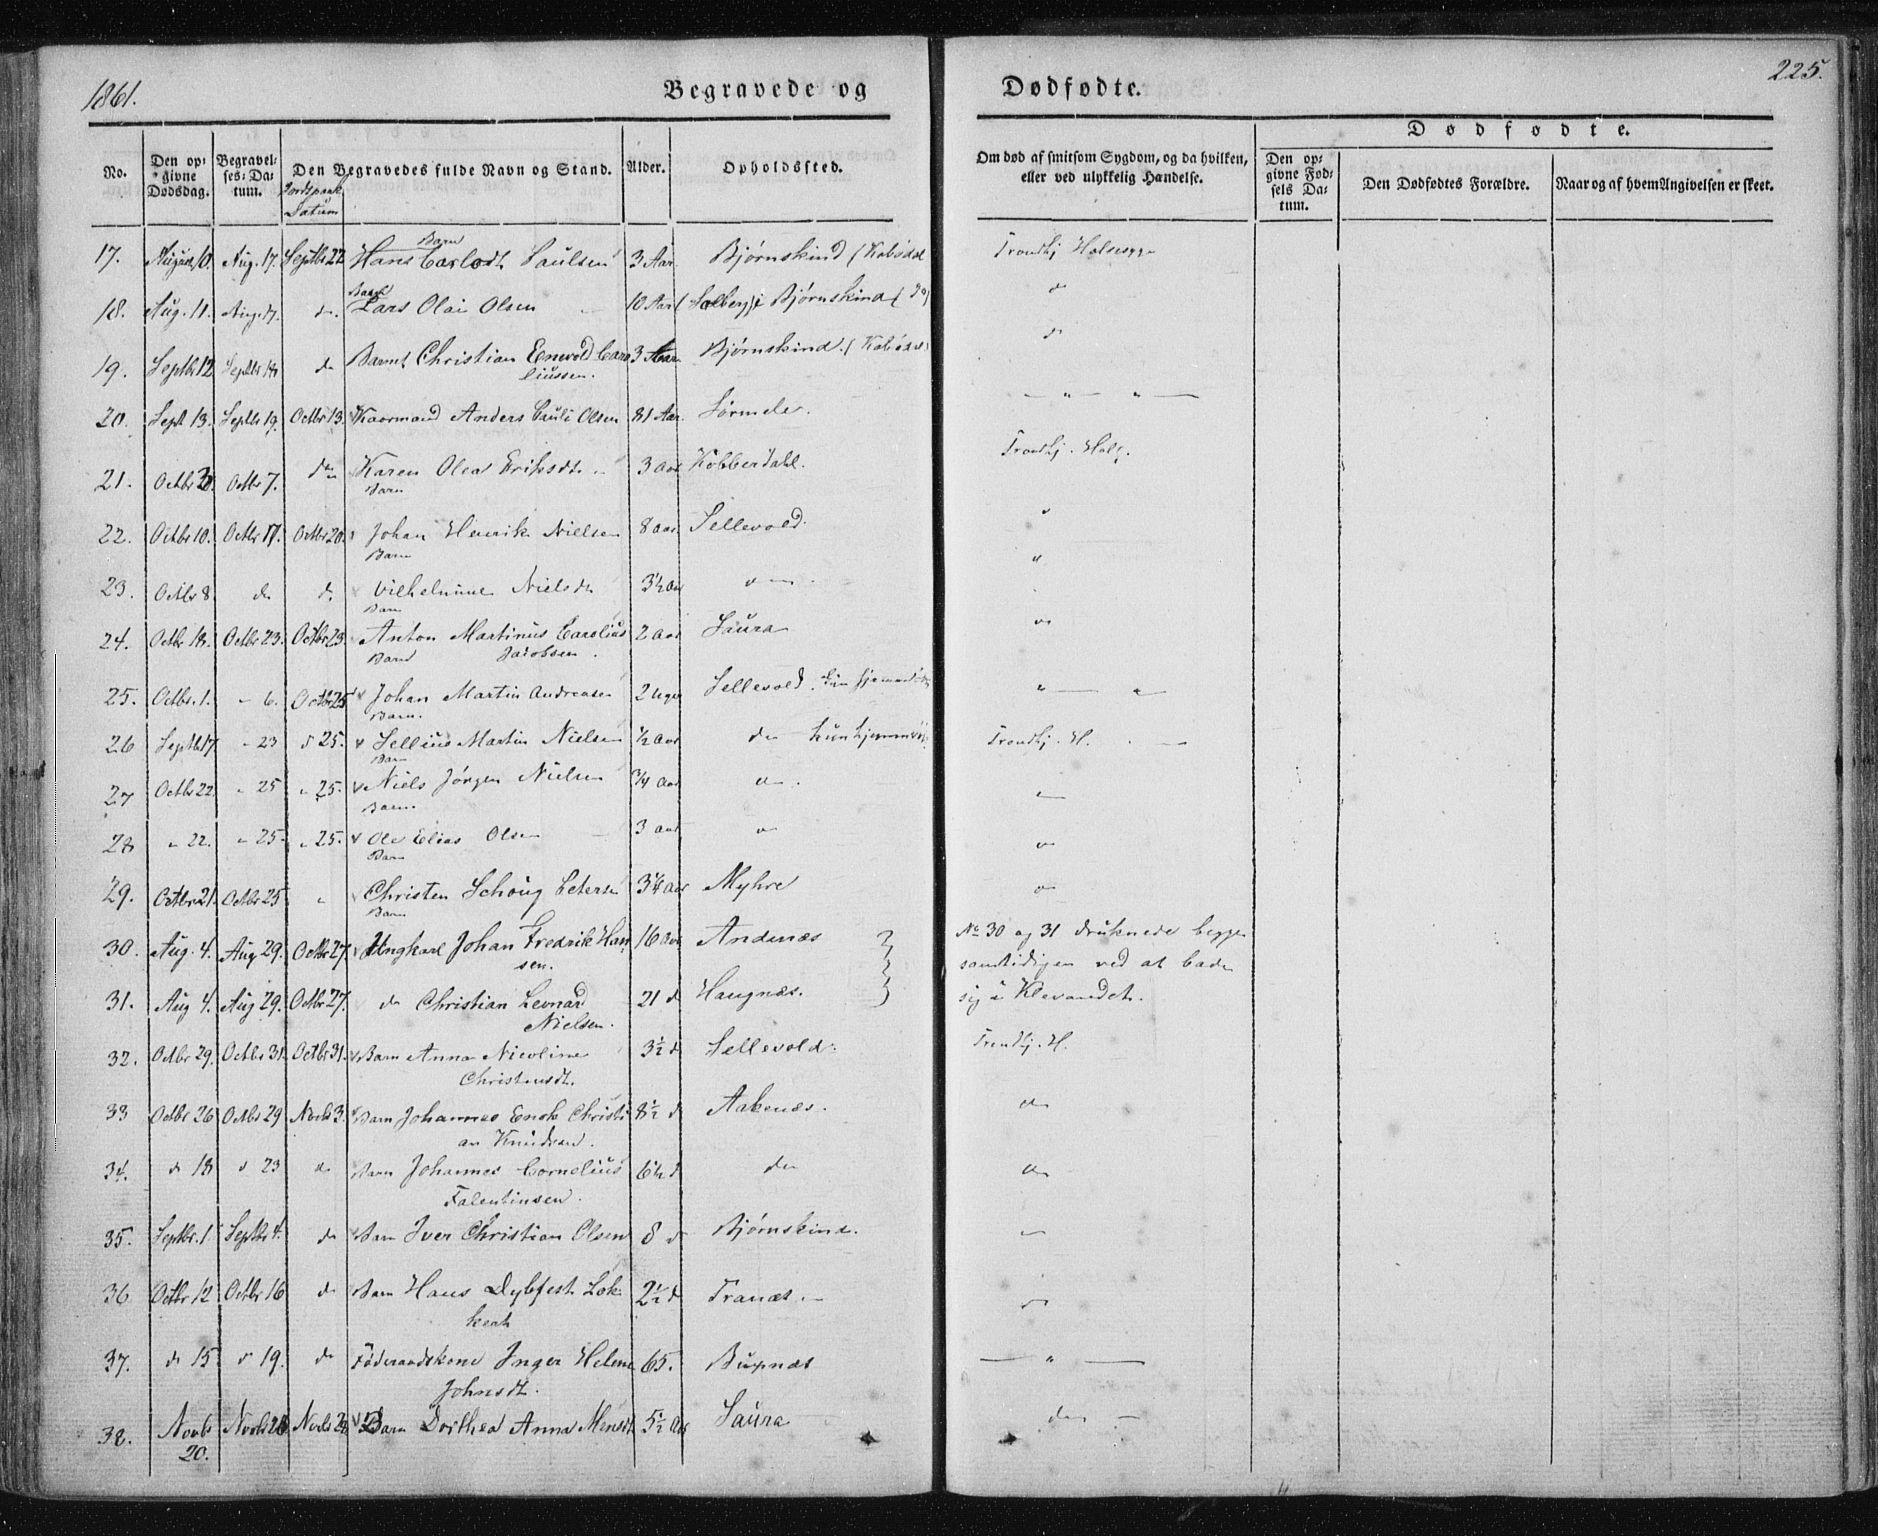 1861.
Begravede og
Dødfødte.
225.
No.
Den op-
givne
Dødsdag.
Begravel-
ses-Da-
tum.
Jordspaak.
Datum
Den Begravedes fulde Navn og Stand.
Alder.
Opholdssted.
Om død af smitsom Sygdom, og da hvilken,
eller ved ulykkelig Hændelse.
Dødfødte.
Den op-
givne Fød-
sels Da-
tum.
Den Dødfødtes Forældre.
Naar og af hvem Angivelsen er skeet.
17. August 10. Aug. 17. Septbr 22 Barn Hans 3 Aar Bjørnskind Trondhj Halssyge
18. Aug. 11. Aug. 17. do. Barn Lars Olai Olsen 10 Aar (Solberg) i Bjørnskind (do) do
19. Septbr 12 Septbr 18 do Barnet Christian Enevold Caro 3 Aar Bjørnskind. do
liussen.
20. Sept 13. Septbr 19. Octbr 13. Kaarmand Anders Pauli Olsen 81 Aar. Sørmele. — " — " —
21. Octbr 3. Octbr 7. do Karen Olea Eriksdtr 3 Aar Kobberdahl. Trondhj. Hals.
Barn
22. Octbr 10. Octbr 17. Octbr 20. Johan Henrik Nielsen 8 aar. Sellevold. "
Barn
23. Octbr 8. do do Vilhelmine Nielsdtr 3½ aar do "
Barn
24. Octbr 18. Octbr 23. Octbr 23. Anton Martinus Carolius 2 Aar Saura do
Barn Jacobsen.
25. Octbr. 1. " 6. Octbr 25 Johan Martin Andreasen 2 Uger Sellevold. " — "
Barn.
26 Septbr 17. " 23 do 25. Sellius Martin Nielsen ½ Aar do kun hjemmedøbt Trondhj. H.
Barn
27 Octbr 22. " 25 " 25. Niels Jørgen Nielsen ¾ Aar do. do
Barn.
28 " 22. " 25. " 25. Ole Elias Olsen 3 Aar do do
Barn
29. Octbr 21. Octbr 25 " Christen Schoug Petersen 3¼ Aar Myhre do
Barn
30. Aug. 4. Aug 29. Octbr 27. Ungkarl Johan Fredrik Han 16 Aar Andenæs No 30 og 31 druknede begge
sen. samtidigen ved at bade
31. Aug 4. Aug 29. Octbr 27. do Christian Leonard 21 d Haugnæs. sig i Klevandet.
Nielsen.
32. Octbr 29. Octbr 31. Octbr 31. Barn Anna Nicoline 3½ d Sellevold. Trondhj. H.
Christensdt.
33 Octbr 26 Octbr 29 Novbr 3. Barn Johannes Enok Christi 8½ d Aakenæs. do
an Knudsen.
34. do 18 do 23 do Barn Johannes Cornelius 6½ d do do
Falentinsen.
35. Septbr. 1. Septbr 4. do Barn Iver Christian Olsen 8 d Bjørnskind. do
36 Octbr 12 Octbr 16 do Barn Hans Dybfest Lok 2½ d Tranæs. do
kert
37. do 15 do 19. do Føderaadskone Inger Helene 65. Bupnæs — " —
Johnsdt.
38. Novbr Novbr Novbr Barn Dorthea Anna Mensdt 5½ Aar Saura do —
20.